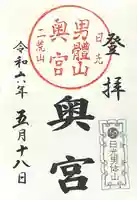 登拝
日光
男體山
奥宮
二荒山
奥宮
令和六年五月十八日
日光男体山